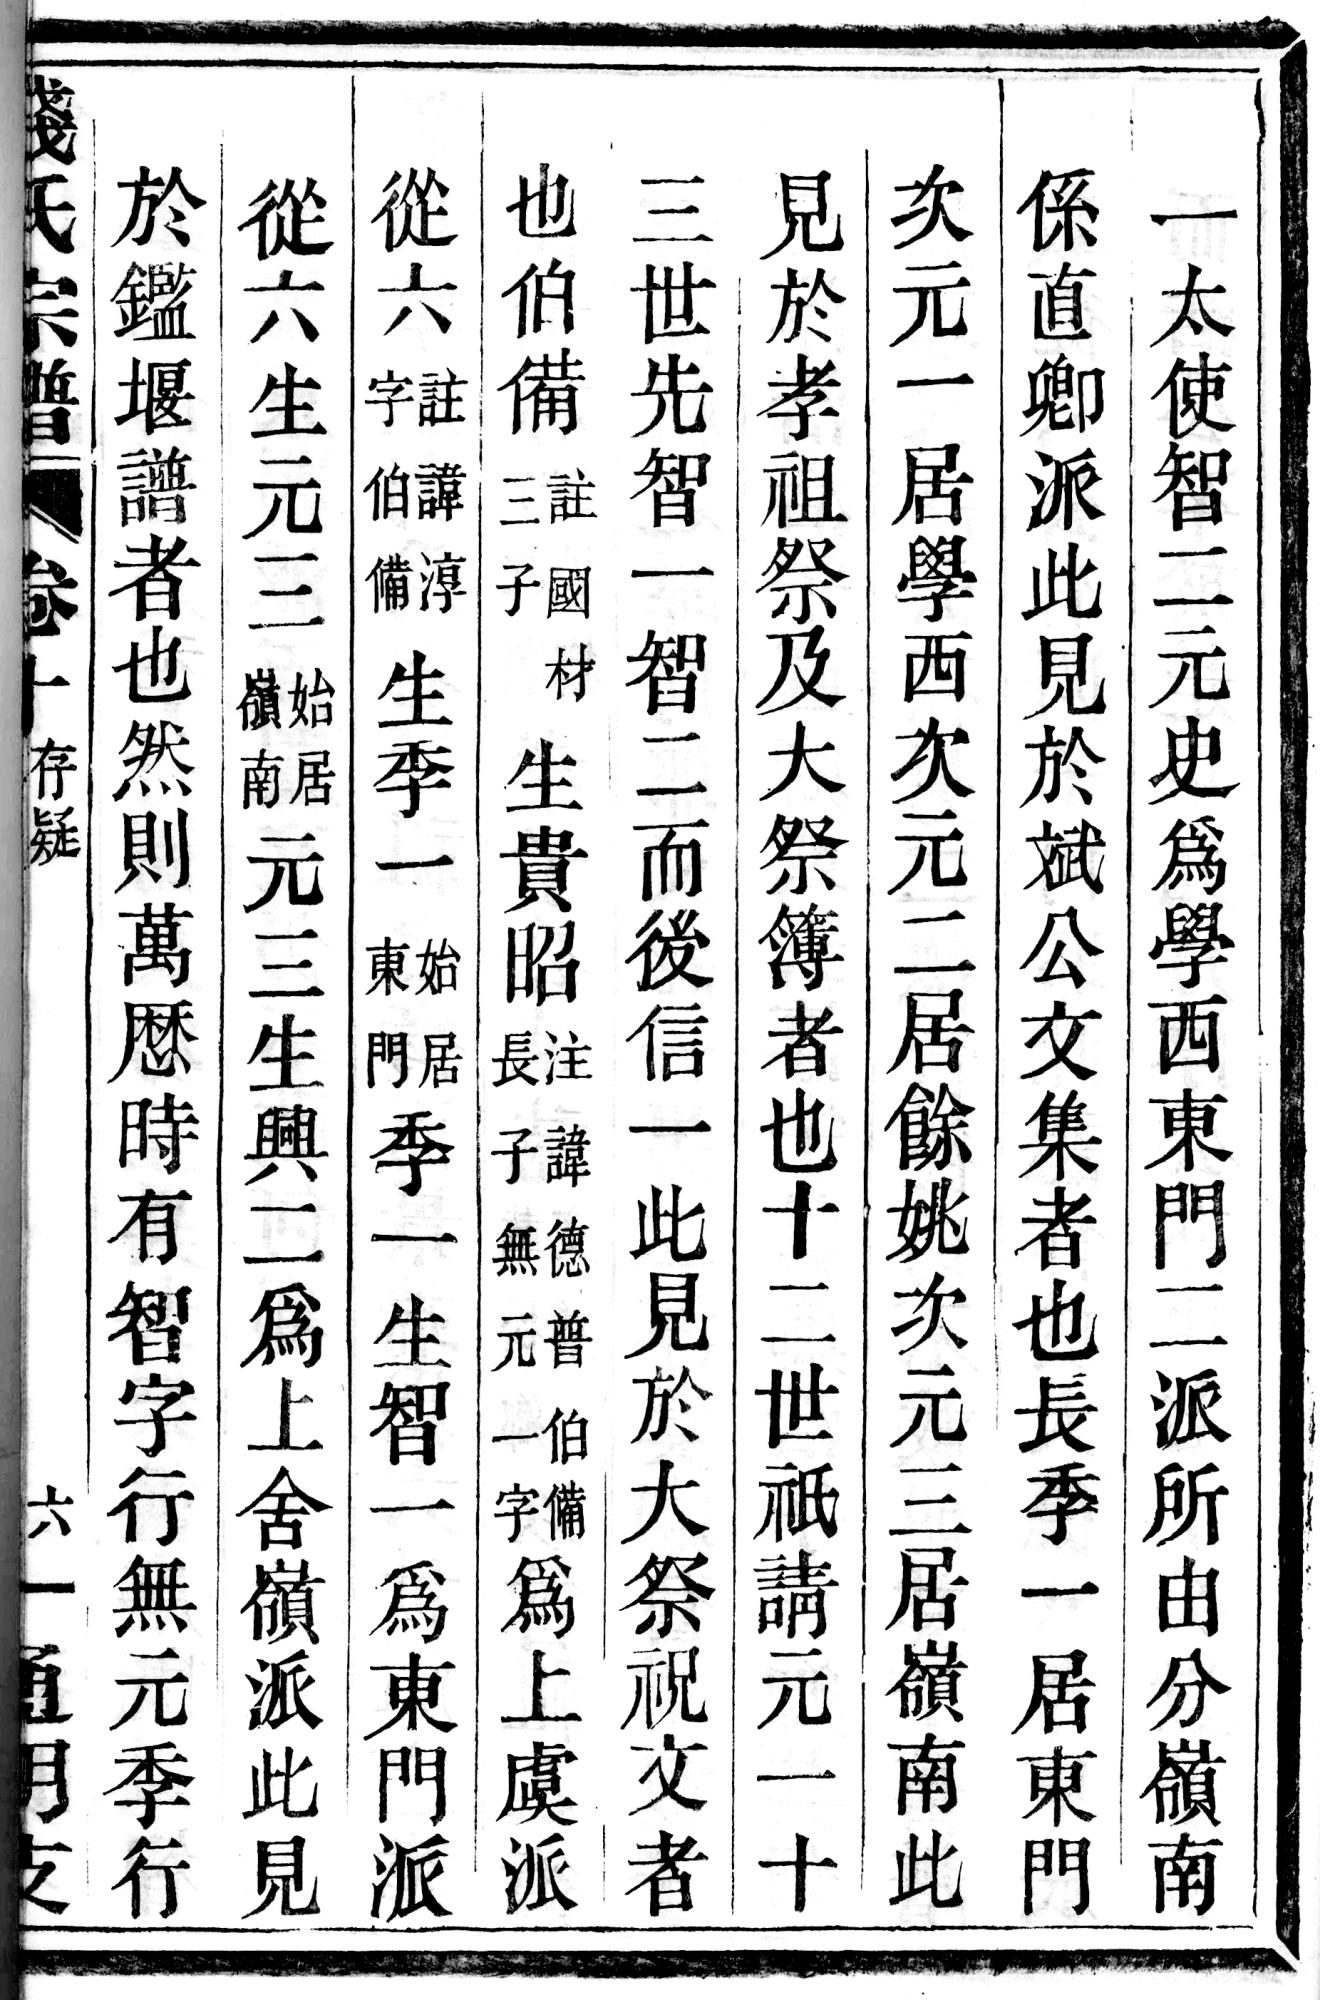 一太使智二元史爲學西東門二派所由分嶺南
係直卿派此見於斌公文集者也長季一居東門
次元一居學西次元二居餘姚次元三居嶺南此
見於孝祖祭及大祭簿者也十二世祇請元一十
三世先智一智二而後信一此見於大祭祝文者
也伯備註國材三子生貴昭注諱德普伯備長子無元一字爲上虞派
從六註諱淳字伯備生季一始居東門季一生智一爲東門派
從六生元三始居嶺南元三生興二爲上舍嶺派此見
於鑑堰譜者也然則萬厯時有智字行無元季行
錢氏宗譜 卷十 存疑 六一 通明支